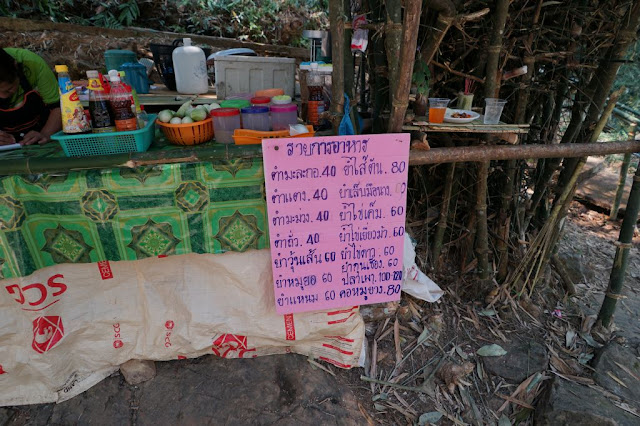 รายการอาหาร
ตำมะละกอ.40
ตำแตง.40
ตำมะม่วง.40
ตำถั่ว.40
ยำวุ้นเส้น 60
ยำหมูยอ 60
ยำแหนม 60
ยำไส้ตัน.80
ยำเล็บมือนาง.
ยำไข่เค็ม.60
ยำไข่เยี่ยวม้า.60
ยำไข่ดาว.60
ยำกุนเชียง.60
ปลาเผา.100-120
คอหมูย่าง.80
SCG
SCG
CEMENT